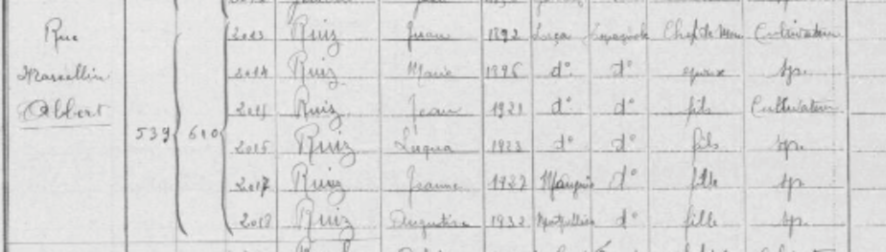 Rue
Marcellin
Albert
539 610
2013 Ruiz Juan 1892 Espagnole Chef de Mén Cultivateur
2014 Ruiz Marie 1896 d° d° épouse sp.
2015 Ruiz Jean 1921 d° d° fils Cultivateur
2016 Ruiz 1923 d° d° fils sp.
2017 Ruiz Jeanne 1927 d° fille sp.
2018 Ruiz Augustine 1932 Montpellier d° fille sp.